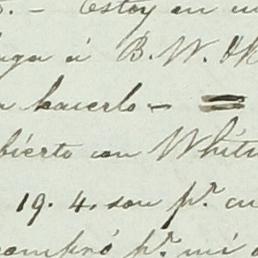 . - Estoy en
á B. W.
hacerlo -
bierto con Whit
19. 4. son p.r cu
compró p.r mi